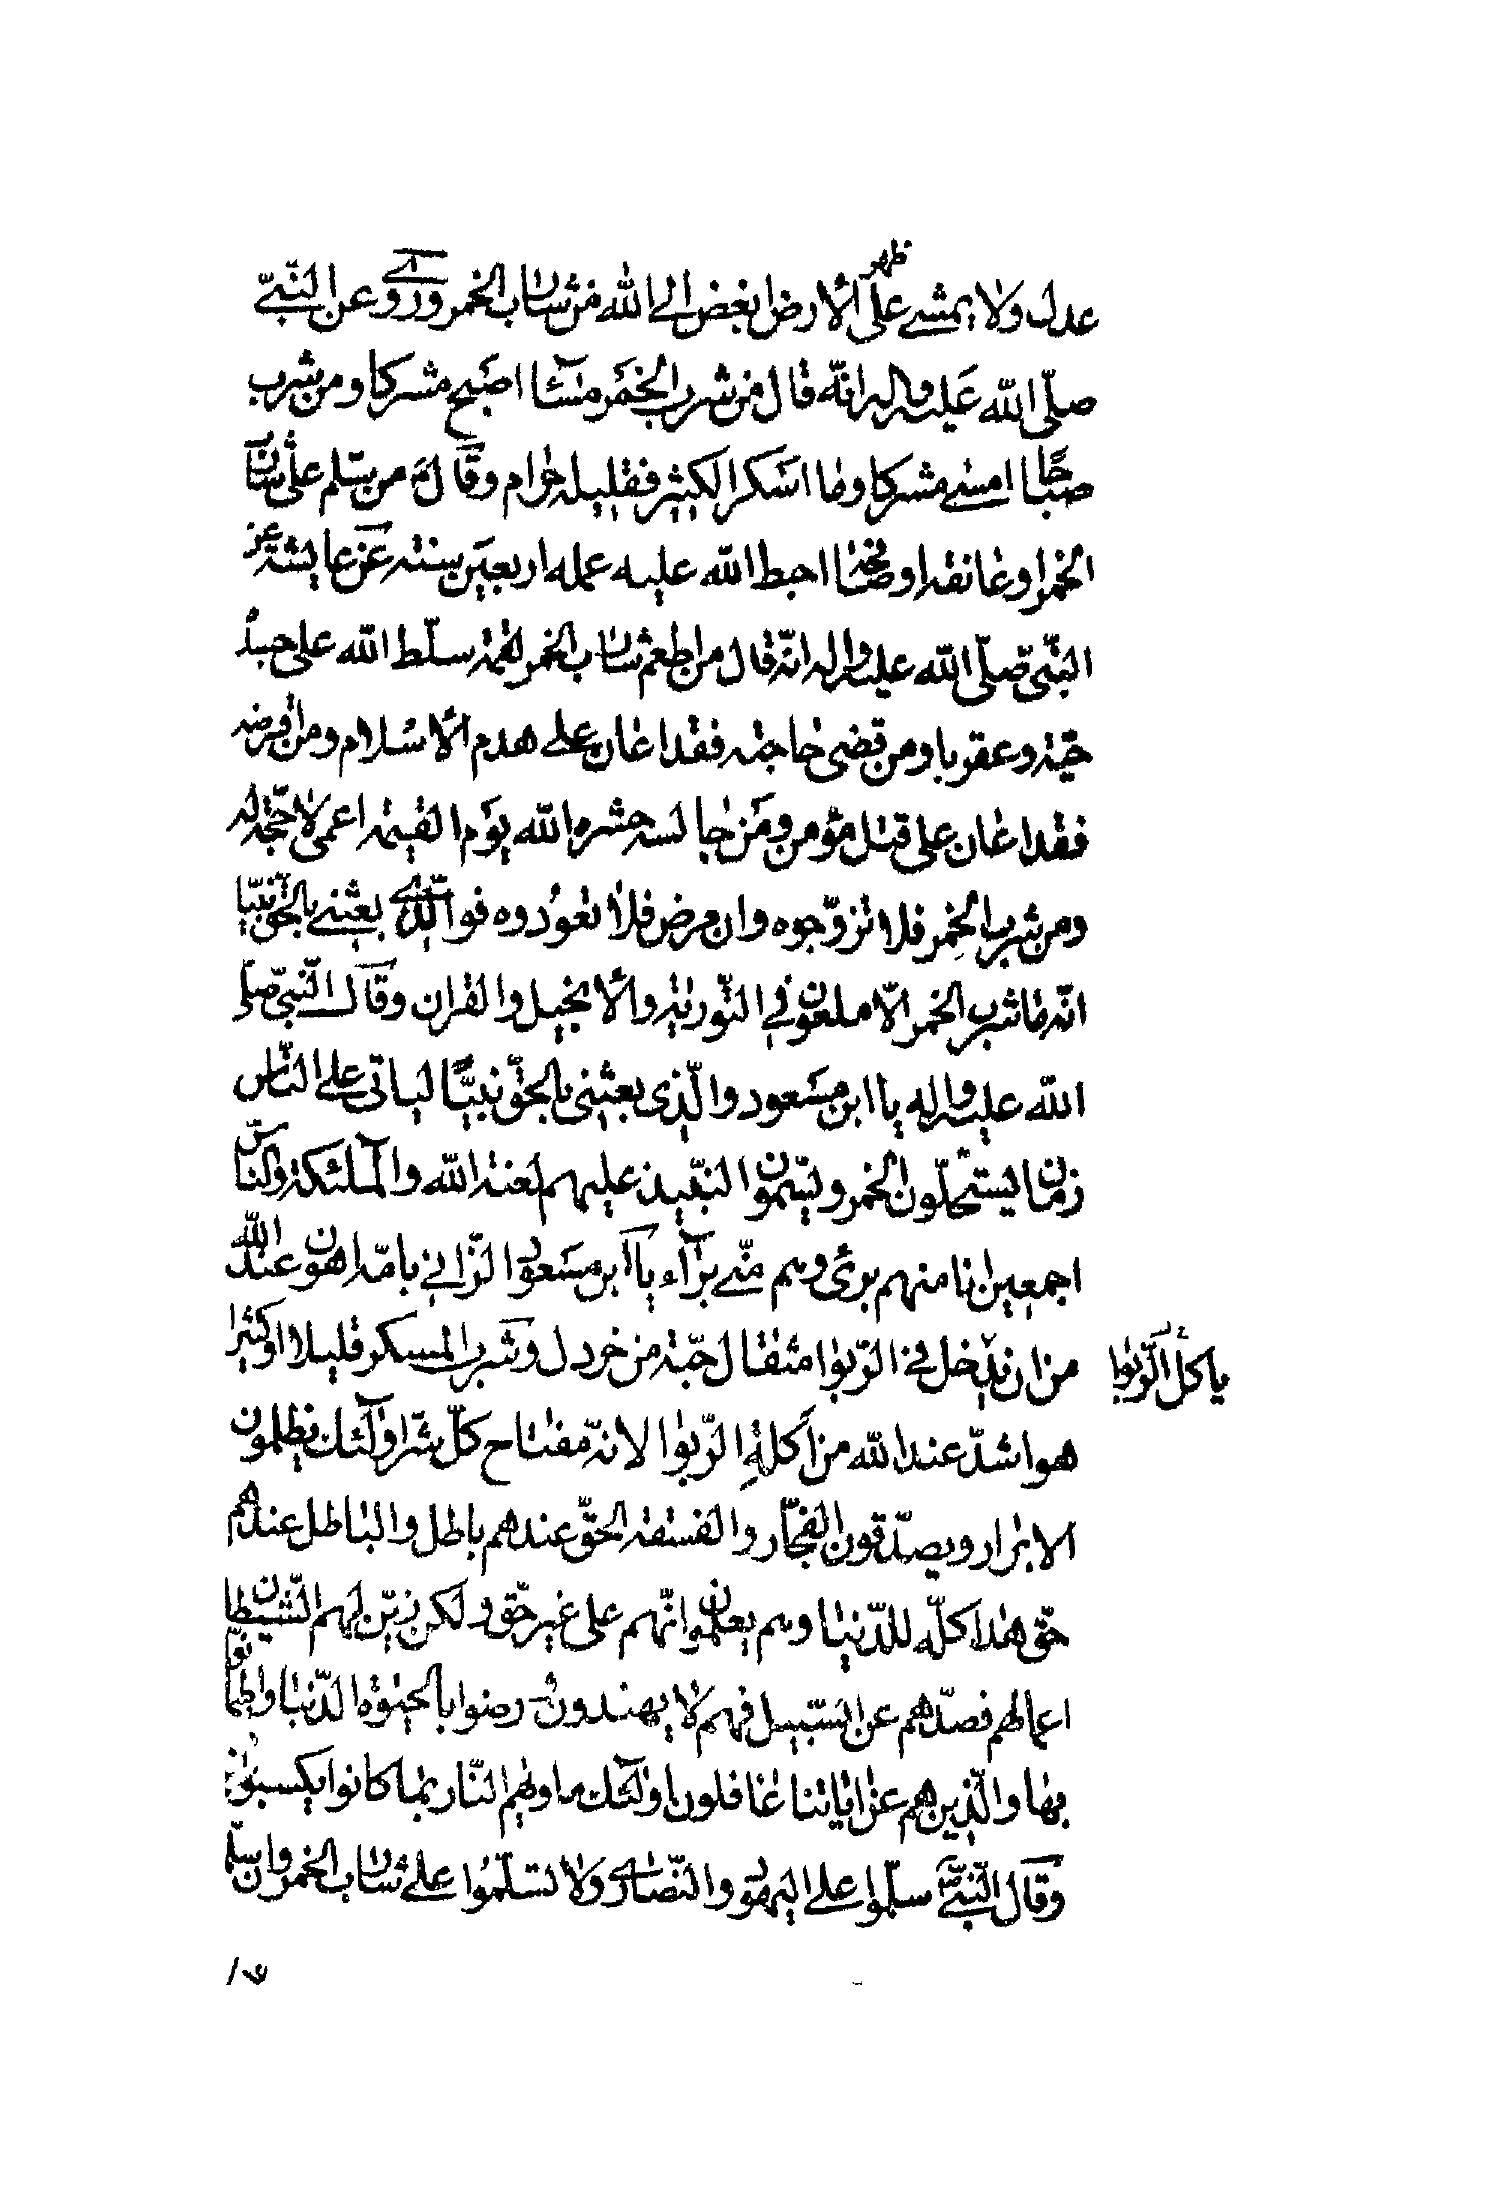 عدل ولا يمشي على ظهر الارض ابغض الى الله من شارب الخمر وروى عن النبي
صلّى الله عليه واله انّه قال من شرب الخمر مساءا اصبح مشركا ومن شرب
صباحًا امسى مشركا وما اسكر الكثير فقليله حرام وقال من سلم على شارب
الخمر او عانقه او صافحه احبط الله عليه عمله اربعين سنته عن عايشة عن
النّبى صلّى الله عليه واله انّه قال من اطعم شارب الخمر لقمة سلّط الله على جسده
حيّة وعقربا ومن قضى حاجته فقد اعان على هدم الاسلام ومن اقرضه
فقد اعان على قتل مؤمن ومن جالسه حشره الله يوم القيمة اعمى لا حجّة له
ومن شرب الخمر فلا تزوّجوه وان مرض فلا تعودوه فوالّذى بعثنى بالحقّ نبيّا
انّه ما شرب الخمر الّا ملعون في التّورية والانجيل والقران وقال النّبىّ صلى
الله عليه واله يا ابن مسعود والّذى بعثنى بالحقّ نبيًّا لياتى على النّاس
زمان يستحلّون الخمر ويسمّون النّبيذ عليهم لعنة الله والملئكة والنّاس
اجمعين انا منهم برئ وهم منّى برآء يا ابن مسعود الزّانى بامّه اهون عند الله
من ان يدخل في الرّبوا مثقال حبّة من خردل وشرب المسكر قليلا او كثيرا
ياكل الرّبوا
هو اشدّ عند الله من اكلة الرّبوا لانّه مفتاح كلّ شرّ اولٰئك يظلمون
الابرار ويصدّقون الفجّار والفسقة الحقّ عندهم باطل والباطل عندهم
حقّ هذا كلّه للدّنيا وهم يعلمون انّهم على غير حقّ ولكن زيّن لهم الشّيطان
اعمالهم فصدّهم عن السّبيل فهم لا يهتدون رضوا بالحيٰوة الدّنيا واطمأنّوا
بها والّذين هم عن اٰياتنا غافلون اولئك ماويهم النّار بما كانوا يكسبون
وقال النّبىّ سلّموا على اليهود والنّصارى ولا تسلّموا على شارب الخمر وان سلّم